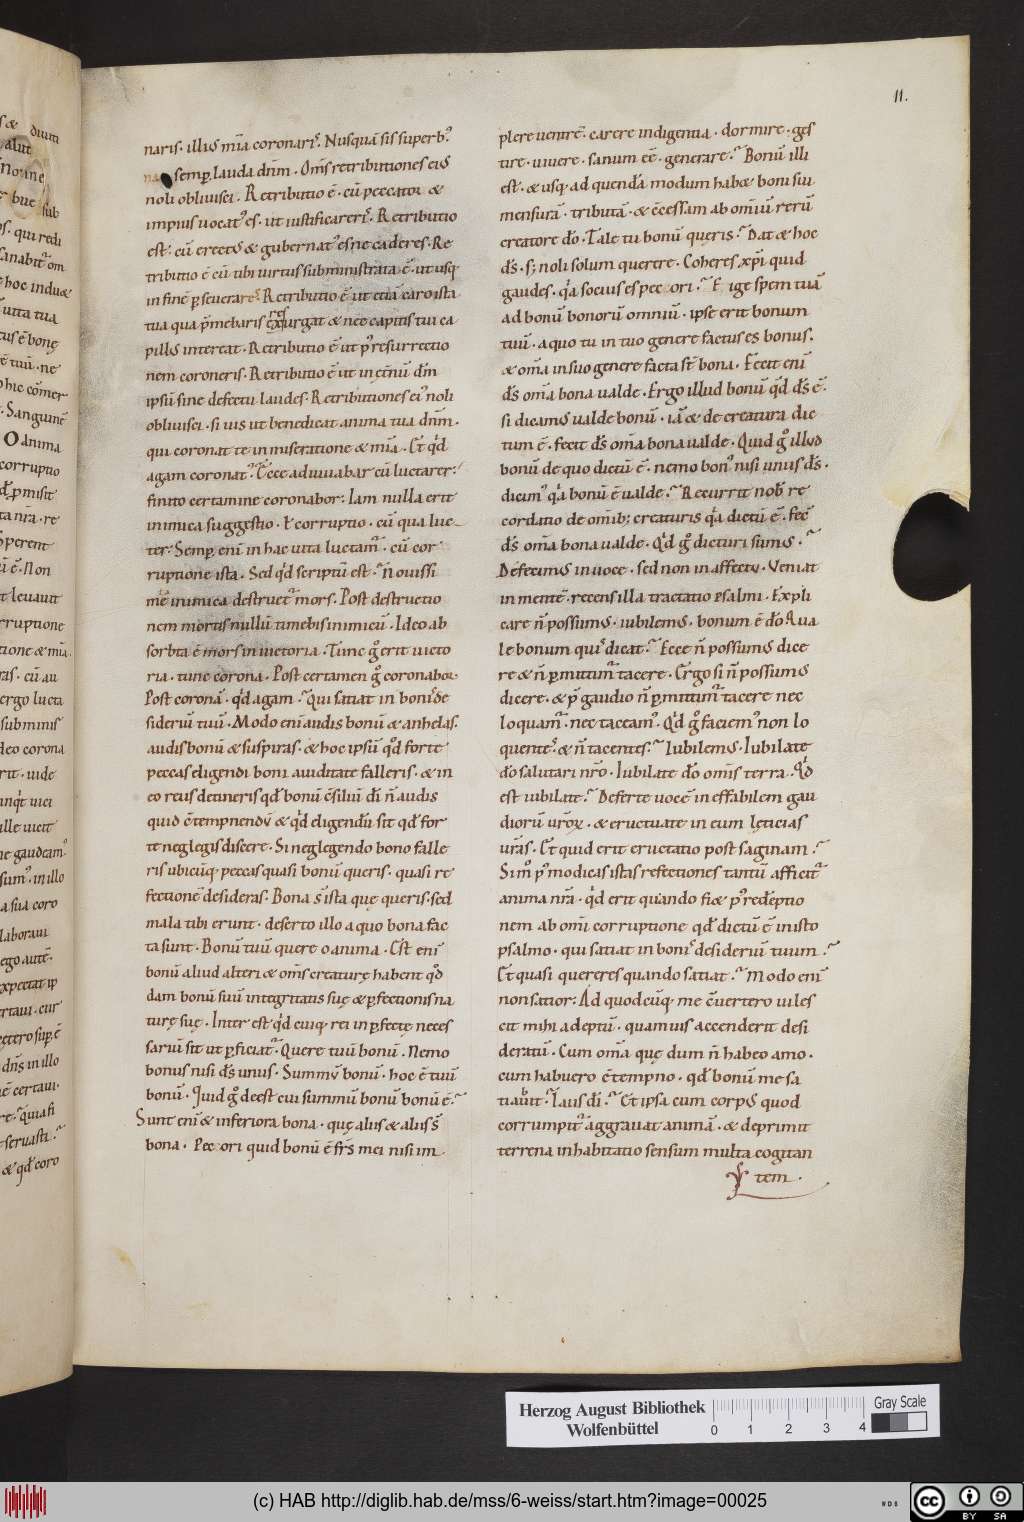 11.
naris. illius mīa coronarꝭ. Nusquā sis superbꝰ
semp̱ lauda dn̄m. Om̄s retributiones eiꝰ
noli obliuisci. Retributio ē. cū peccator &
impius uocatꝰ es. ut iustificarerꝭ. Retributio
est. cū erectꝰ & gubernatꝰ es ne caderes. Re
tributio ē cū tibi uirtus subministrata ē. ut usq
in finē p̱seuerares. Retributio ē ut etiā caro ista
tua qua p̄mebaris resurgat & nec capitis tui ca
pillꝰ intereat. Retributio ē ut pꝰ resurrectio
nem coroneris. Retributio ē ut in ęt̄nū dn̄m
ipsū sine defectu laudes. Retributiones eiꝰ noli
obliuisci. si uis ut benedicat anima tua dn̄m.
qui coronat te in miseratione & mīa. Et qͥd
agam coronatꝰ? Ecce adiuuabar cū luctarer:
finito certamine coronabor: Iam nulla erit
inimica suggestio. ł corruptio. cū qua luc
ter: Semp̱ enī in hac uita luctamꝰ. cū cor
ruptione ista. Sed qͥd scriptū est? n̄ouissi
mē inimica destruetꝰ mors. Post destructio
nem mortis nullū timebis inimicū. Ideo ab
sorbta ē mors in uictoria. Tunc gͦ erit uicto
ria. tunc corona. Post certamen gͦ coronabor.
Post coronā. qͥd agam? Qui satiat in bonis de
siderīu tuū. Modo enī audis bonū & anhelas.
audis bonū & suspiras. & hoc ipsū qͦd forte
peccas eligendi boni auiditate falleris. & in
eo reus detineris qd̄ bonū c̄siliū dī n̄ audis
quid c̄tempnendū & qͥd eligendū sit qd̄ for
te neglegis discere. Si neglegendo bono falle
ris ubicūq peccas quasi bonū queris. quasi re
fectionē desideras. Bona s̄ ista quę queris. sed
mala tibi erunt. deserto illo a quo bona fac
ta sunt. Bonū tuū quere o anima. Est enī
bonū aliud alteri & om̄s creaturę habent qͦd
dam bonū suū integritatis suę & p̱fectionis na
turę suę. Inter est qͥd cuiq rei inp̱fectę neces
sariū sit ut p̱ficiatꝰ. Quere tuū bonū. Nemo
bonus nisi d̄s unus. Summū bonū. hoc ē tuū
bonū. Quid gͦ deest cui summū bonū bonū ē?
Sunt enī & inferiora bona. quę aliis & aliis s̄
bona. Peccori quid bonū ē fr̄s mei nisi im
plere uentrē. carere indigentia. dormire. ges
tire. uiuere. sanum ēē. generare? Bonū illi
est. & usq ad quendā modum hab& boni sui
mensurā. tributā. & c̄cessam ab omiū rerū
creatore dō. Tale tu bonū queris? Dat & hoc
d̄s. s; noli solum querere. Coheres xp̄i quid
gaudes. qͥa socius es peccori? Erige spem tuā
ad bonū bonorū omniū. ipse erit bonum
tuū. a quo tu in tuo genere factus es bonus.
& om̄a in suo genere facta st̄ bona. Fecit enī
d̄s om̄a bona ualde. Ergo illud bonū qͥd d̄s ē.
si dicamꝰ ualde bonū. iā & de creatura dic
tum ē. fecit d̄s om̄a bona ualde. Quid gͦ illud
bonū de quo dictū ē. nemo bonꝰ nisi unus d̄s.
dicimꝰ qͥa bonū ē ualde? Recurrit nob re
cordatio de om̄ib; creaturis qͥa dictū ē. fec̄
d̄s om̄a bona ualde. Qͥd gͦ dicturi sumꝰ?
Defecimꝰ in uoce. sed non in affectu. Veniat
in mentē. recens illa tractatio psalmi. Expli
care n̄ possumꝰ. iubilemꝰ. bonum ē dō. Qua
le bonum quis dicat? Ecce n̄ possumꝰ dice
re & n̄ p̱mittimꝰ tacere. Ergo si n̄ possumꝰ
dicere. & p̄ gaudio n̄ p̱mittimꝰ tacere nec
loquamꝰ. nec taceamꝰ. Qͥd gͦ faciemꝰ non lo
quentes. & n̄ tacentes? Iubilemꝰ. Iubilate
dō salutari nr̄o. Iubilate dō omīs terra. Qͥd
est iubilate? Deferte uocē ineffabilem gau
diorū ur̄oꝝ. & eructuate in eum lęticias
ur̄as. Et quid erit eructatio post saginam?
Si m̊ pꝰ modicas istas refectiones tantū afficitꝰ
anima nr̄a. qͥd erit quando fi& pꝰ redēptio
nem ab omī corruptione qd̄ dictū ē in isto
psalmo. qui satiat in bonis desideriū tuum?
Et quasi quereres quando satiat? Modo enī
non satior: Ad quodcūq me c̄uertero uiles
cit mihi adeptū. quamuis accenderit desi
deratū. Cum om̄a quę dum n̄ habeo amo.
cum habuero c̄tempno. qd̄ bonū me sa
tiauit? Laus dī? Et ipsa cum corpꝰ quod
corrumpitꝰ aggrauat animā. & deprimit
terrena inhabitatio sensum multa cogitan
tem.
Herzog August Bibliothek
Wolfenbüttel
0 1 2 3 4
Gray Scale
(c) HAB http://diglib.hab.de/mss/6-weiss/start.htm?image=00025
WDB
cc BY SA